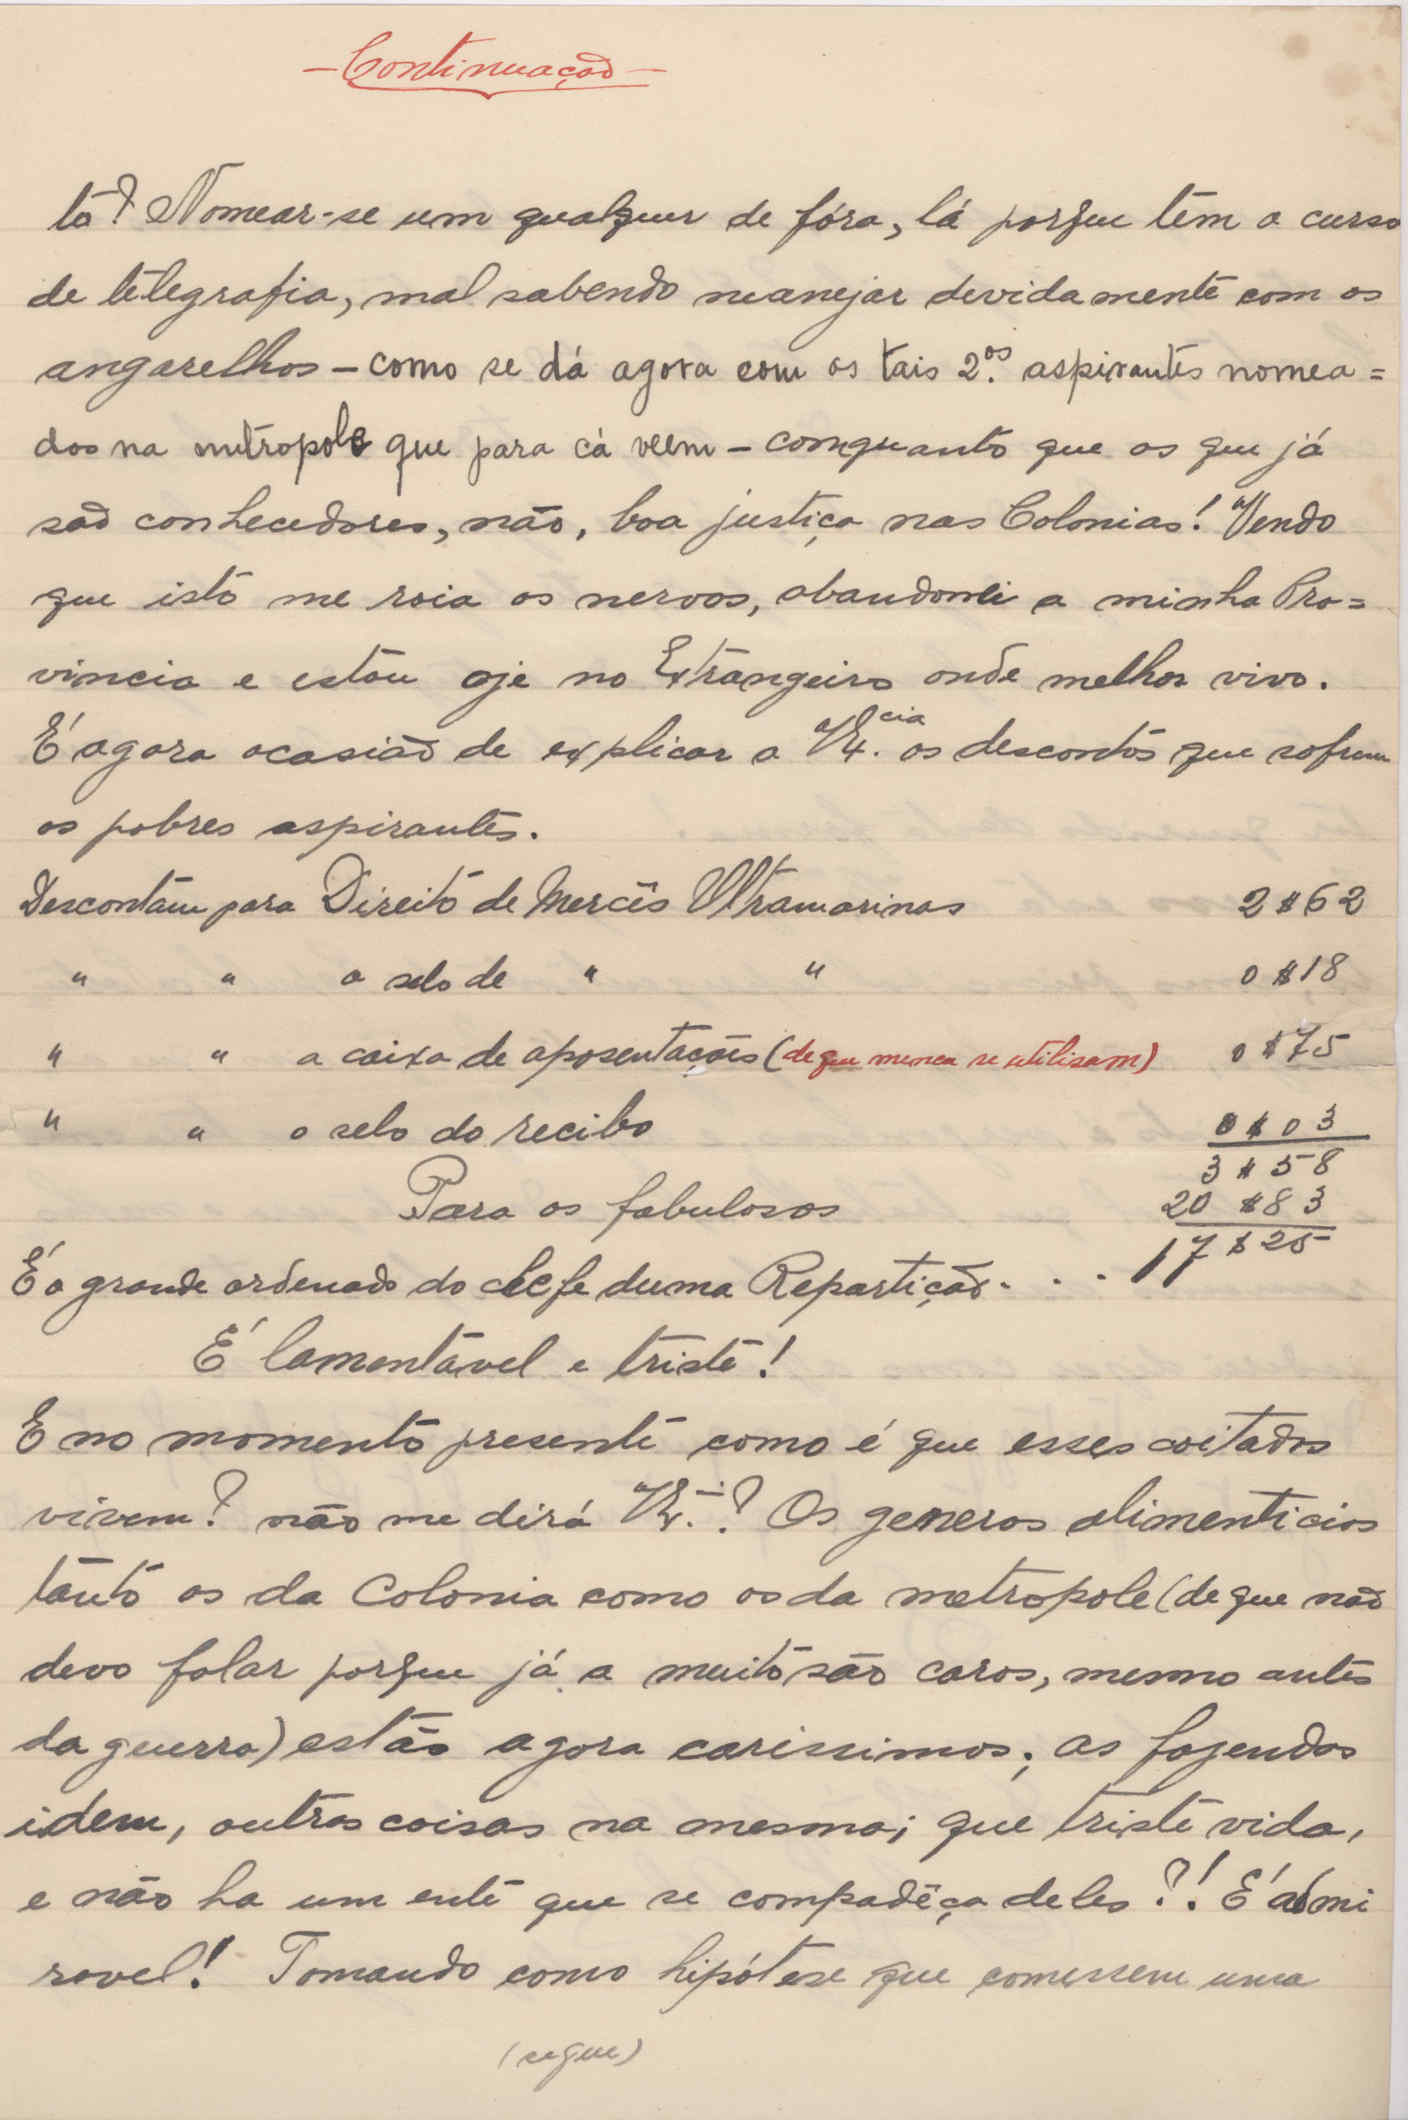 - Continuação -
to? Nomear-se um qualquer de fóra, lá porque tem o curso
de telegrafia, mal sabendo manejar devidamente com os
angarelhos - como se dá agora com os tais 2.os aspirantes nomea=
dos na metropole que para cá veem - comquanto que os que já
são conhecedores, não, boa justiça nas Colonias! Vendo
que isto me roia os nervos, abandonei a minha Pro=
vincia e estou oje no Extrangeiro onde melhor vivo.
É agora ocasião de explicar a V. Ex.cia os descontos que sofrem
os pobres aspirantes.
Descontam para Direito de Mercês Ultramarinas 2$62
" " o selo de " " 0$18
" " a caixa de aposentações (de que nunca se utilisam) 0$75
" " o selo do recibo 0$03
3$58
Para os fabulosos 20$83
É o grande ordenado do chefe duma Repartição . . . 17$25
É lamentavel e triste!
E no momento presente como é que esses coitados
vivem? não me dirá V. Ex.? Os generos alimenticios
tanto os da Colonia como os da metropole (de que não
devo falar porque já a muito são caros, mesmo antes
da guerra) estão agora carissimos; as fazendas
idem, outras coisas na mesma; que triste vida,
e não ha um ente que se compadêça deles?! É admi
ravel! Tomando como hipótese que comessem uma
(segue)